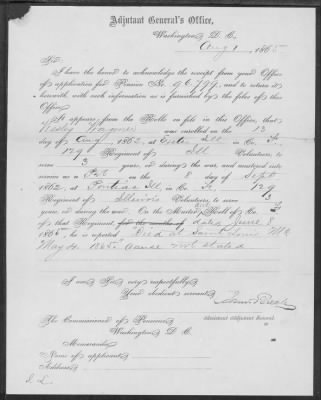 Adjutant General's Office,
Washington, D. C.
Aug 1, 1865
Sir:
I have the honor to acknowledge the receipt from your Office
of application for Pension No. 96.799, and to return it
herewith, with such information as is furnished by the files of this
Office.
It appears from the Rolls on file in this Office, that
Wesley Wagoner was enrolled on the 13
day of Aug, 1862, at Ill in Co.
129 Regiment of Ill Volunteers, to
serve 3 years, or during the war, and mustered into
service as a Pvt on the 8 day of Sept
1862, at Pontiac Ill, in Co. 129
Regiment of Illinois Volunteers, to serve 3
years, or during the war. On the Muster Out Roll of Co.
of that Regiment for the months of dated June 8
1865, he is reported "Died at
May 4, 1865. Cause not stated
I am, Sir, very respectfully,
Your obedient servant,
Assistant Adjutant General.
The Commissioner of Pensions,
Washington, D. C.
Memoranda:
Name of applicant,
Address,